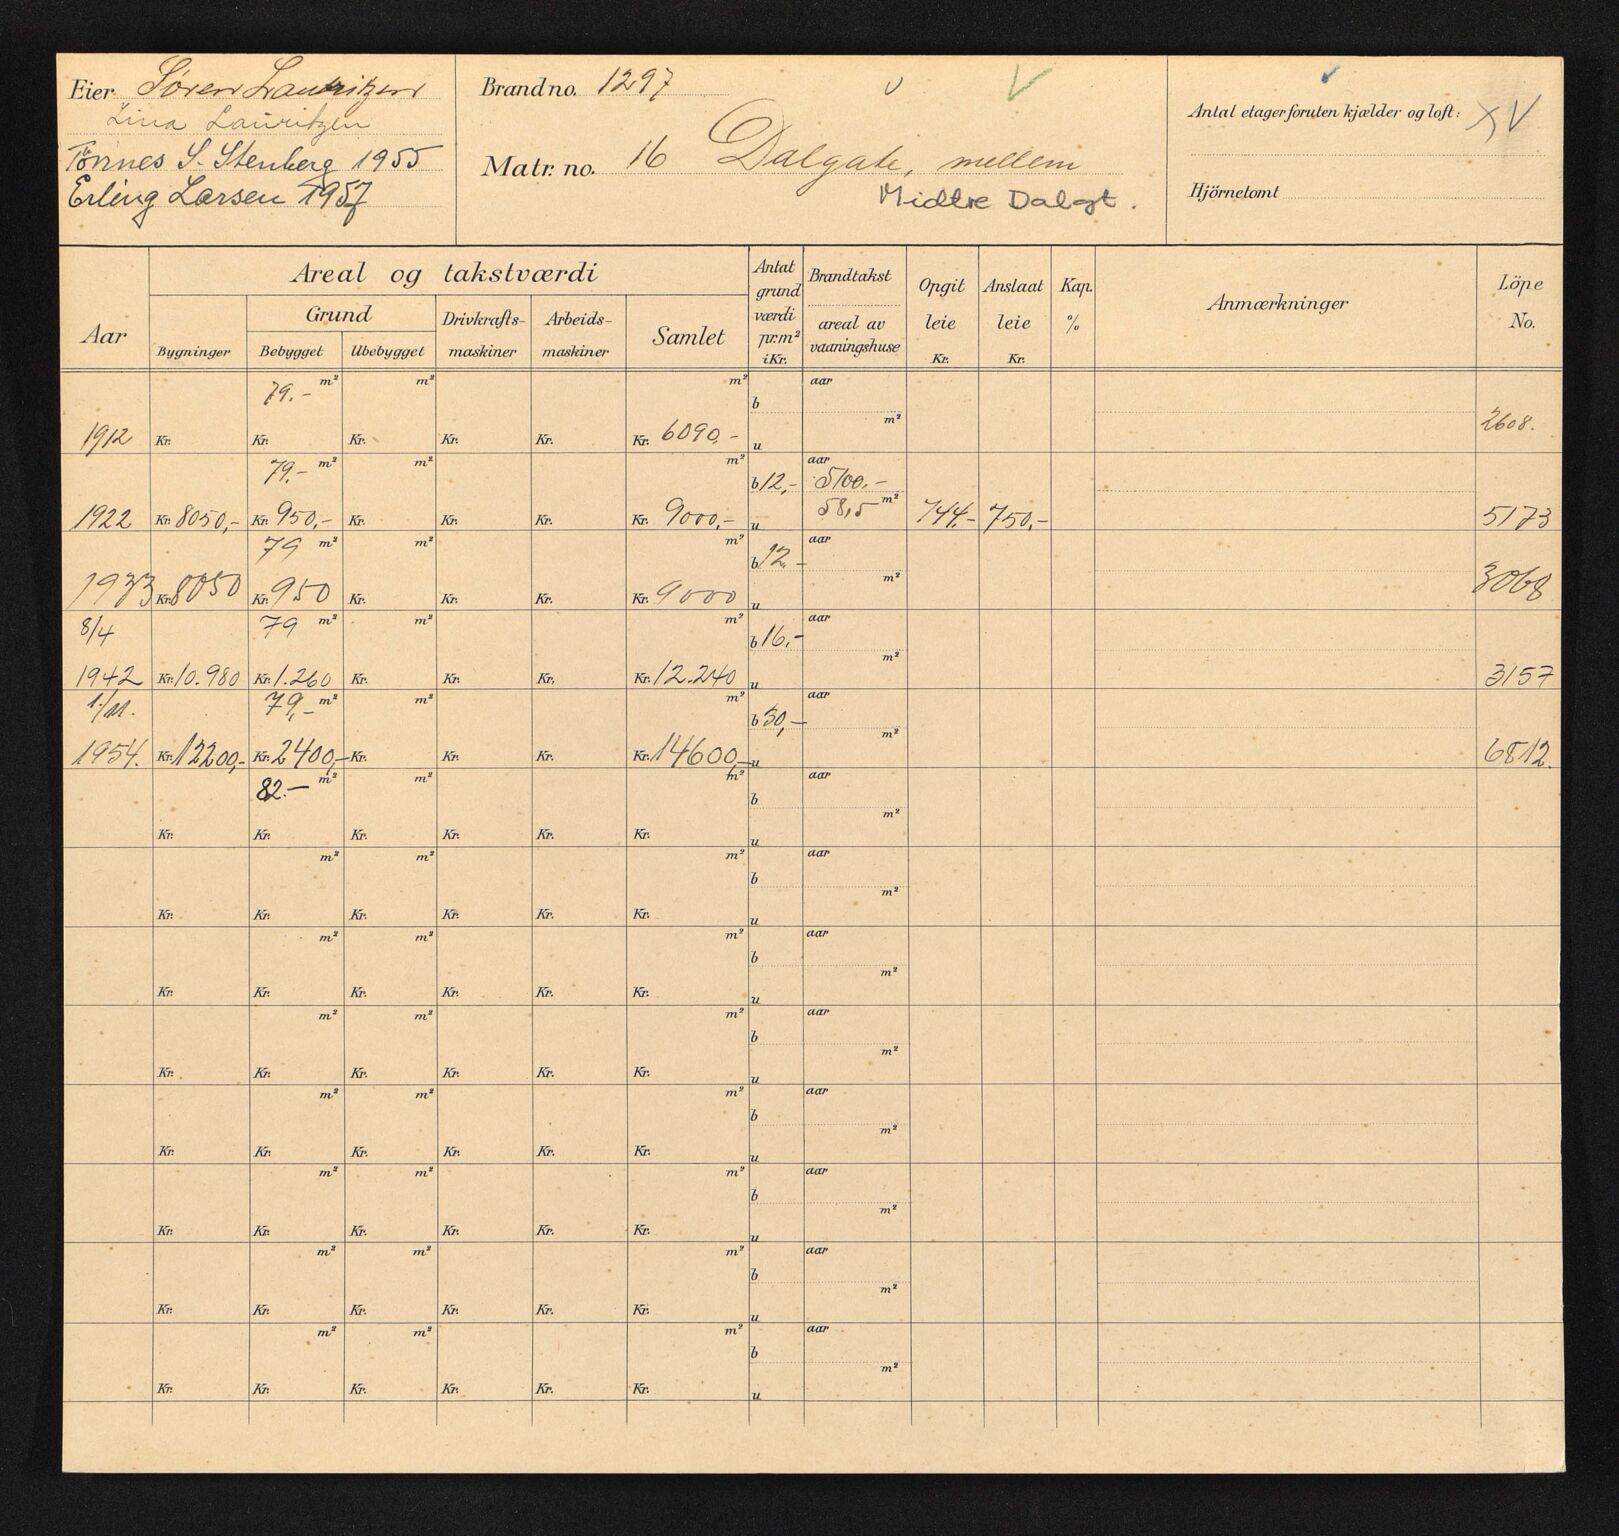 Eier Søren Lauritzen
Lina Lauritzen
Tønnes S. Stenberg 1955
Erling Larsen 1957
Brand no. 1297
Matr. no. 16 Dalgate, mellem
Midtre Dalgt.
Antal etager foruten kjælder og loft: XV
Hjörnetomt
Aar
Areal og takstværdi
Grund
Bygninger Bebygget Ubebygget
Drivkrafts- maskiner
Arbeids- maskiner
Samlet
Antat grund værdi pr. m² i Kr.
Brandtakst
areal av vaaningshuse
Opgit leie Kr.
Anslaat leie Kr.
Kap. %
Anmærkninger
Löpe No.
79.- m² m² m² b aar
1912 Kr. Kr. Kr. Kr. Kr. Kr. 6090,- u m² 2608.
79,- m² m² m² b 12,- aar 5100.-
1922 Kr. 8050,- Kr. 950,- Kr. Kr. Kr. Kr. 9000,- u 58,5 m² 744,- 750,- 5173
79 m² m² m² b 12,- aar
1933 Kr. 8050 Kr. 950 Kr. Kr. Kr. Kr. 9000 u m² 3068
8/4 79 m² m² m² b 16,- aar
1942 Kr. 10.980 Kr. 1.260 Kr. Kr. Kr. Kr. 12.240 u m² 3157
1/11. 79,- m² m² m² b 30,- aar
1954. Kr. 12200,- Kr. 2400,- Kr. Kr. Kr. Kr. 14600,- u m² 6812.
82.- m² m² m² b aar
Kr. Kr. Kr. Kr. Kr. Kr. u m²
m² m² m² b aar
Kr. Kr. Kr. Kr. Kr. Kr. u m²
m² m² m² b aar
Kr. Kr. Kr. Kr. Kr. Kr. u m²
m² m² m² b aar
Kr. Kr. Kr. Kr. Kr. Kr. u m²
m² m² m² b aar
Kr. Kr. Kr. Kr. Kr. Kr. u m²
m² m² m² b aar
Kr. Kr. Kr. Kr. Kr. Kr. u m²
m² m² m² b aar
Kr. Kr. Kr. Kr. Kr. Kr. u m²
m² m² m² b aar
Kr. Kr. Kr. Kr. Kr. Kr. u m²